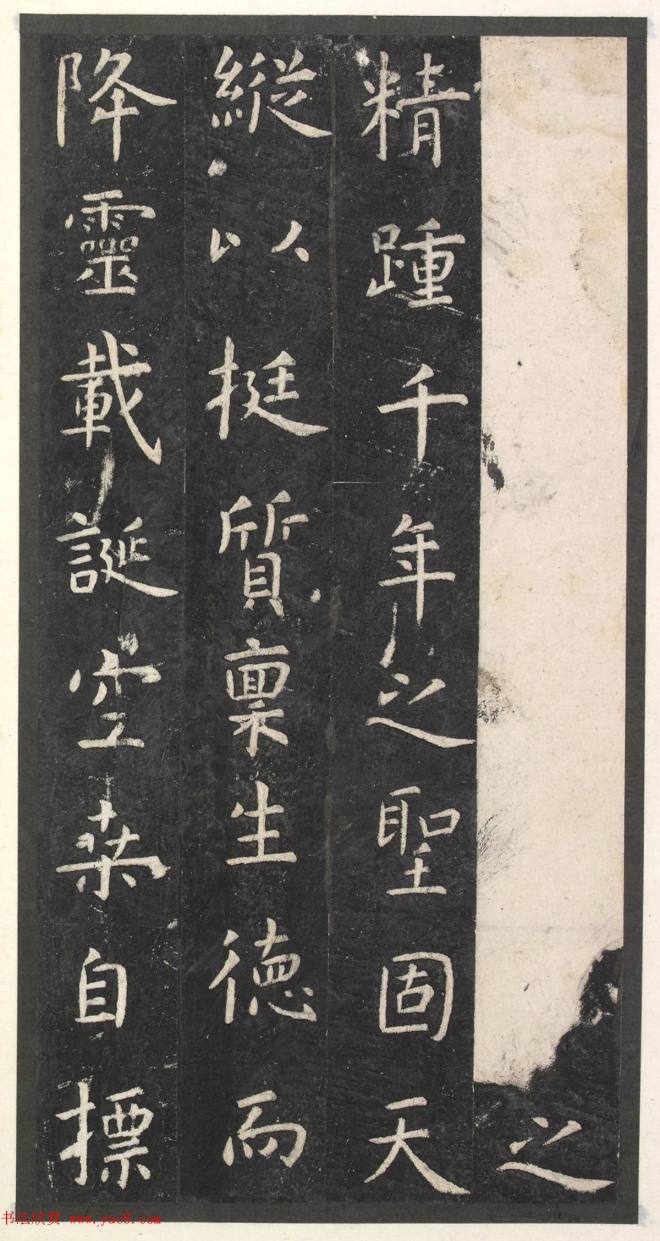 之
精踵千年之聖固天
縱以挺質禀生德而
降靈載誕空桒自標
书法欣赏 www.yac8.com